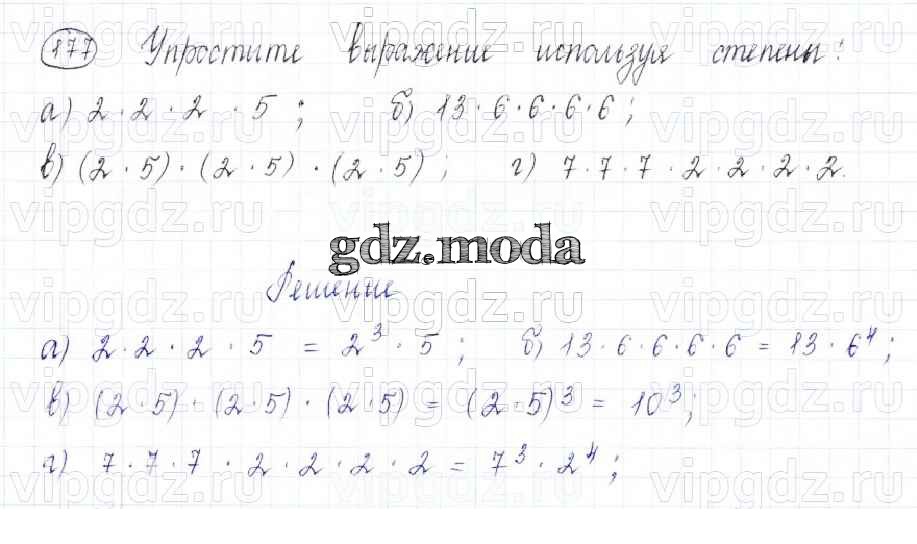 177 Упростите выражение используя степены:
а) 2 · 2 · 2 · 5 ; б) 13 · 6 · 6 · 6 · 6 ;
в) (2 · 5) · (2 · 5) · (2 · 5) ; г) 7 · 7 · 7 · 2 · 2 · 2 · 2.
gdz.moda
Решение
а) 2 · 2 · 2 · 5 = 2³ · 5 ; б) 13 · 6 · 6 · 6 · 6 = 13 · 6⁴ ;
в) (2 · 5) · (2 · 5) · (2 · 5) = (2 · 5)³ = 10³ ;
г) 7 · 7 · 7 · 2 · 2 · 2 · 2 = 7³ · 2⁴ ;
vipgdz.ru